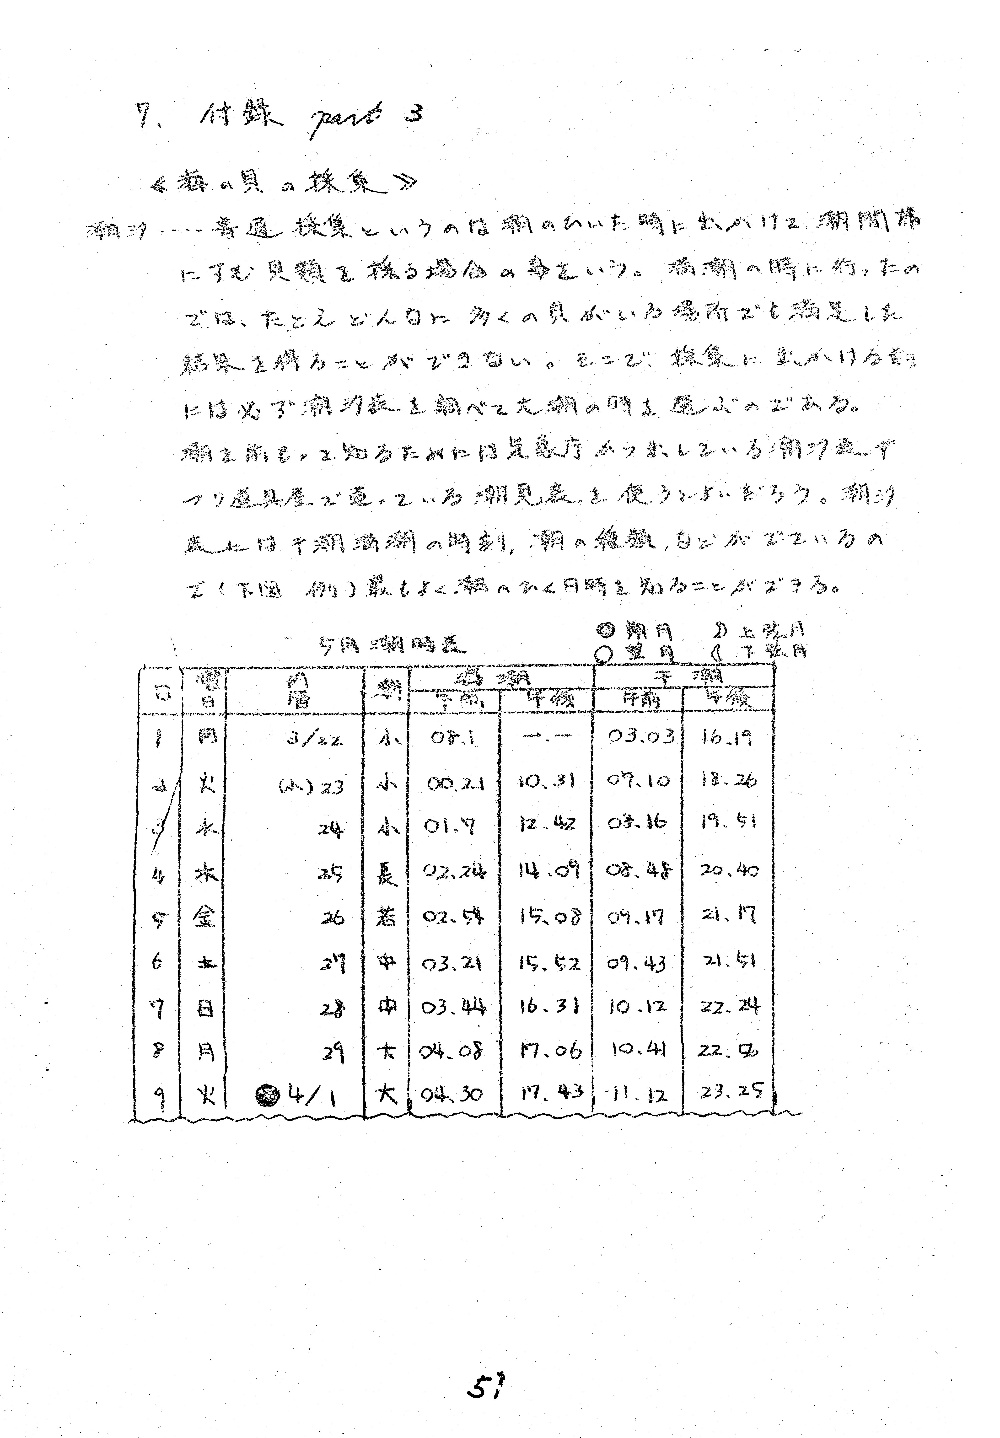 7. 付録 part 3
≪海の貝の採集≫
潮汐……普通採集というのは潮のひいた時に出かけて潮間帯
にすむ貝類を採る場合の事をいう。満潮の時に行ったの
では、たとえどんなに多くの貝がいる場所でも満足した
結果を得ることができない。そこで、採集に出かける時
には必ず潮汐表を調べて大潮の時を選ぶのである。
潮を前もって知るためには気象庁から出している潮汐表や
つり道具屋で売っている潮見表を使うとよいだろう。潮汐
表には干潮満潮の時刻,潮の種類,などがでているの
で(下図 例)最もよく潮のひく日時を知ることができる。
5月潮時表 ◎朔月 ☽上弦月
○望月 ☾下弦月
日 曜日 旧暦 潮 満潮 干潮
午前 午後 午前 午後
1 月 3/22 小 08.1 --.-- 03.03 16.19
2 火 (小)23 小 00.21 10.31 07.10 18.26
3 水 24 小 01.7 12.42 08.16 19.51
4 木 25 長 02.24 14.09 08.48 20.40
5 金 26 若 02.54 15.08 09.17 21.17
6 土 27 中 03.21 15.52 09.43 21.51
7 日 28 中 03.44 16.31 10.12 22.24
8 月 29 大 04.08 17.06 10.41 22.
9 火 ●4/1 大 04.30 17.43 11.12 23.25
51